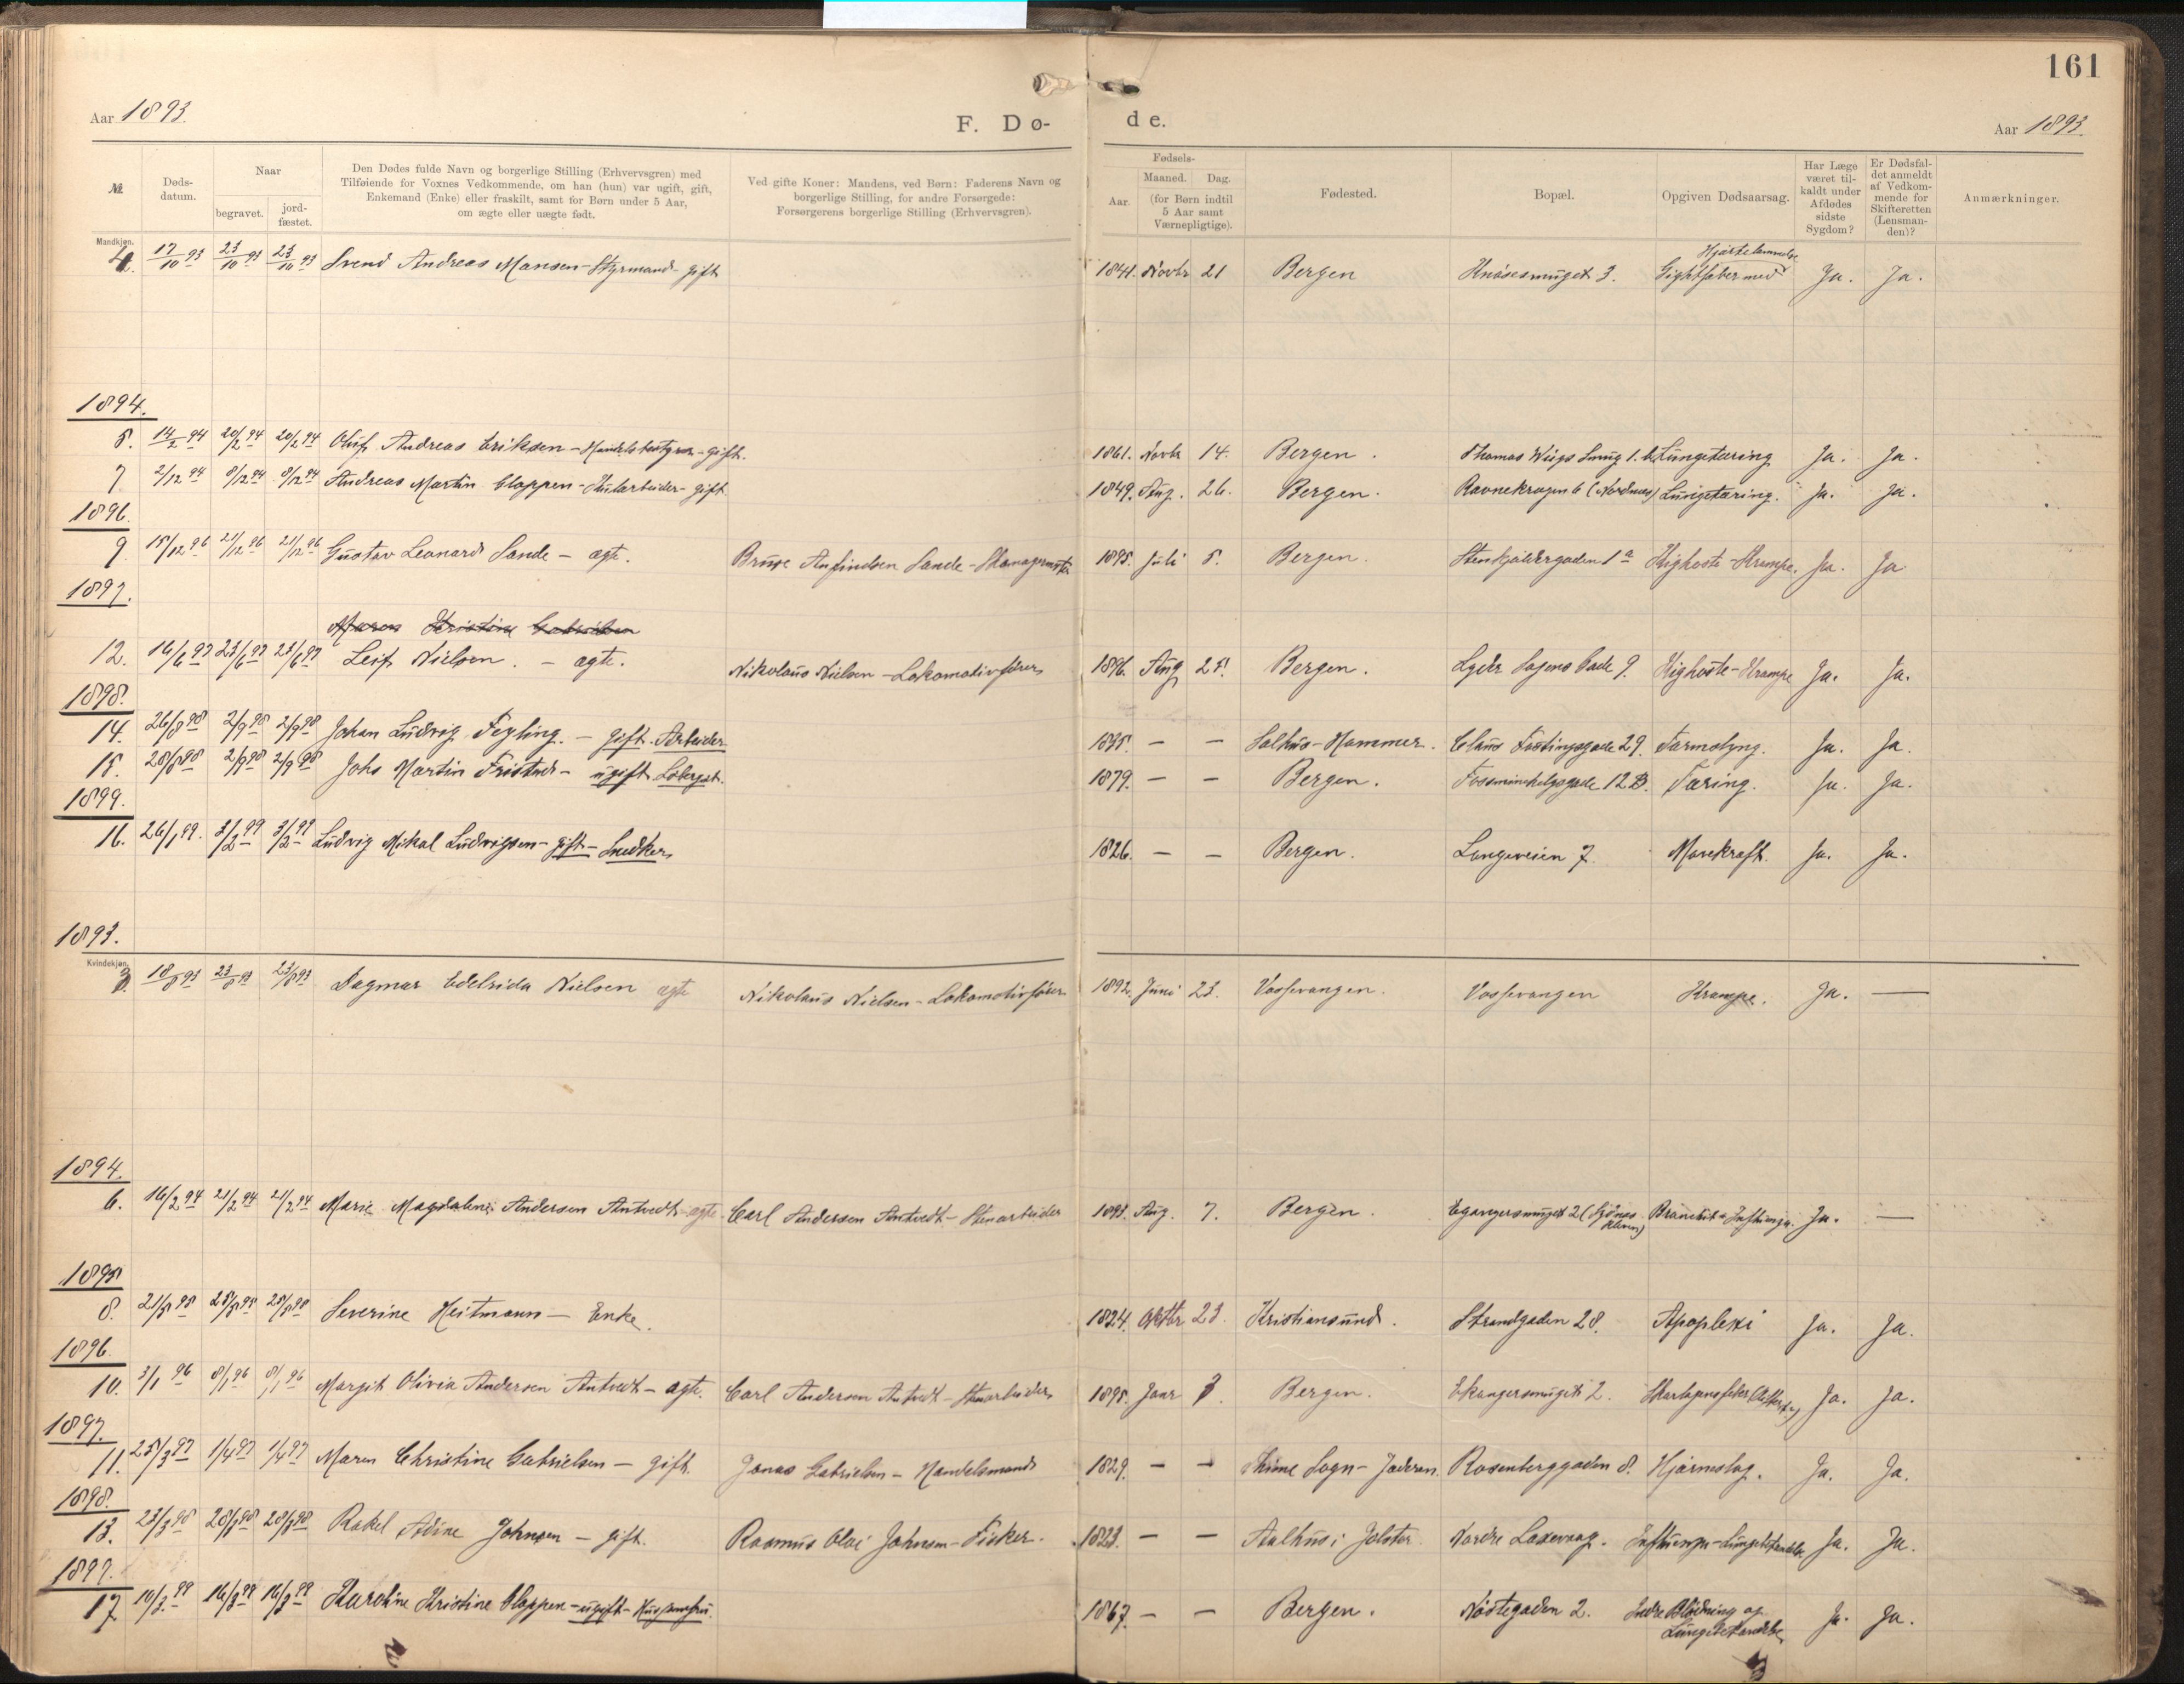 161
Aar 1893.
F. Dø-
de.
Aar 1893.
№
Døds-
datum.
Naar
begravet.
jord-
fæstet.
Den Dødes fulde Navn og borgerlige Stilling (Erhvervsgren) med
Tilføiende for Voxnes Vedkommende, om han (hun) var ugift, gift,
Enkemand (Enke) eller fraskilt, samt for Børn under 5 Aar,
om ægte eller uægte født.
Ved gifte Koner: Mandens, ved Børn: Faderens Navn og
borgerlige Stilling, for andre Forsørgede:
Forsørgerens borgerlige Stilling (Erhvervsgren).
Fødsels-
Aar.
Maaned.
Dag.
(for Børn indtil
5 Aar samt
Værnepligtige).
Fødested.
Bopæl.
Opgiven Dødsaarsag.
Har Læge
været til-
kaldt under
Afdødes
sidste
Sygdom?
Er Dødsfal-
det anmeldt
af Vedkom-
mende for
Skifteretten
(Lensman-
den)?
Anmærkninger.
Mandkjøn.
4. 17/10 93 23/10 93 23/10 93 Svend Andreas Mansen - Styrmand - gift 1841. Novbr 21 Bergen Knøsesmuget 3. Gigtfeber med Ja. Ja.
1894.
5. 14/2 94 20/2 94 20/2 94 Oluf Andreas Eriksen - gift. 1861. Novbr 14. Bergen. Thomas Wiigs Smug 1. Lungetæring Ja. Ja.
7 2/12 94 8/12 94 8/12 94 Andreas Martin Cloppen - gift 1849. Aug. 26. Bergen. Ravnekrogen 6 (Nordnes) Lungetæring. Ja. Ja.
1896.
9. 15/12 96 21/12 96 21/12 96 Gustav Leonard Sande - ægte. Bruse Anfindsen Sande - 1895. Juli 5. Bergen. Stenkjældergaden 1a Kighoste - Krampe. Ja. Ja
1897.
Maren Kristine Gabrielsen
12. 16/6 97 23/6 97 23/6 97 Leif Nielsen. - ægte. Nikolaus Nielsen - Lokomotivfører 1896. Aug 25. Bergen. Lyder Sagens Gade 9. Kighoste - Krampe Ja. Ja.
1898.
14. 26/8 98 2/9 98 2/9 98 Johan Ludvig Fegling. - gift. Arbeider 1835. — — Salhus - Hammer. Claus Fastingsgade 29. Tarmslyng. Ja. Ja.
15. 28/8 98 2/9 98 2/9 98 Johs Martin Fristad - ugift 1879. — — Bergen. 12 B. Tæring. Ja. Ja.
1899.
16. 26/1 99. 3/2 99 3/2 99 Ludvig Mikal Ludvigsen - gift - Snedker 1826. — — Bergen. Langeveien 7. Mavekræft. Ja. Ja.
1893.
Kvindekjøn.
3. 18/8 93 23/8 93 23/8 93 Dagmar Edelrida Nielsen ægte Nikolaus Nielsen - Lokomotivfører 1892. Juni 23. Vossevangen. Vossevangen Krampe. Ja. —
1894.
6. 16/2 94 21/2 94 21/2 94 Marie Magdalene Andersen Antvedt - ægte. Carl Andersen Antvedt - Stenarbeider 1893. Aug. 7. Bergen. Egangersmuget 2 Influenza. Ja. —
1895
8. 21/5 95 25/5 95 25/5 95 Severine Heitmann - Enke. 1824. Oktbr 23. Kristiansund. Strandgaden 28. Apoplexi Ja. Ja.
1896.
10. 3/1 96 8/1 96 8/1 96 Margit Olivia Andersen Antvedt - ægte. Carl Andersen Antvedt - Stenarbeider 1895. Janr 3. Bergen. Ekangersmuget 2. Skarlagensfeber Ja. Ja.
1897.
11. 25/3 97 1/4 97 1/4 97 Maren Christine Gabrielsen - gift. Jonas Gabrielsen - Handelsmand 1829. — — Thime Sogn - Jæderen. Rosenberggaden 8. Hjærneslag. Ja. Ja.
1898.
13. 23/3 98 28/3 98 28/3 98 Rakel Adine Johnsen - gift. Rasmus Olai Johnsen - Fisker. 1823. — — Aalhus i Jolster. Nordre Laxevaag. Influenza - Lungebetændelse Ja. Ja.
1899.
17. 10/3 99 16/3 99 16/3 99 Karoline Kristine Cloppen - ugift - 1867. — — Bergen. Nøstegaden 2. Indre Blødning og Ja. Ja.
Lungebetændelse